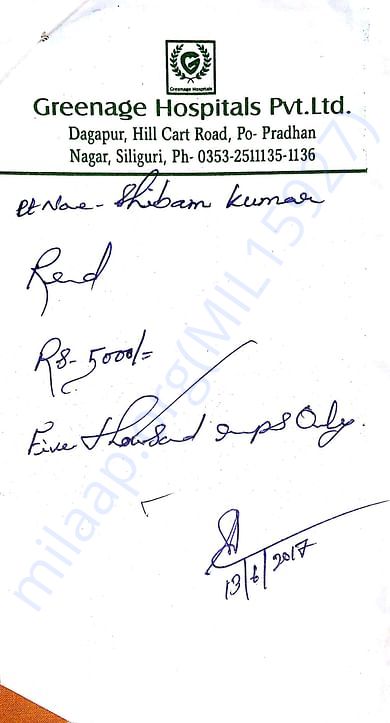 Greenage Hospitals
Greenage Hospitals Pvt.Ltd.
Dagapur, Hill Cart Road, Po- Pradhan
Nagar, Siliguri, Ph- 0353-2511135-1136
Shibam Kumar
Rs- 5000/=
Five thousand Only.
13/6/2017
milaap.org(MIL15927)